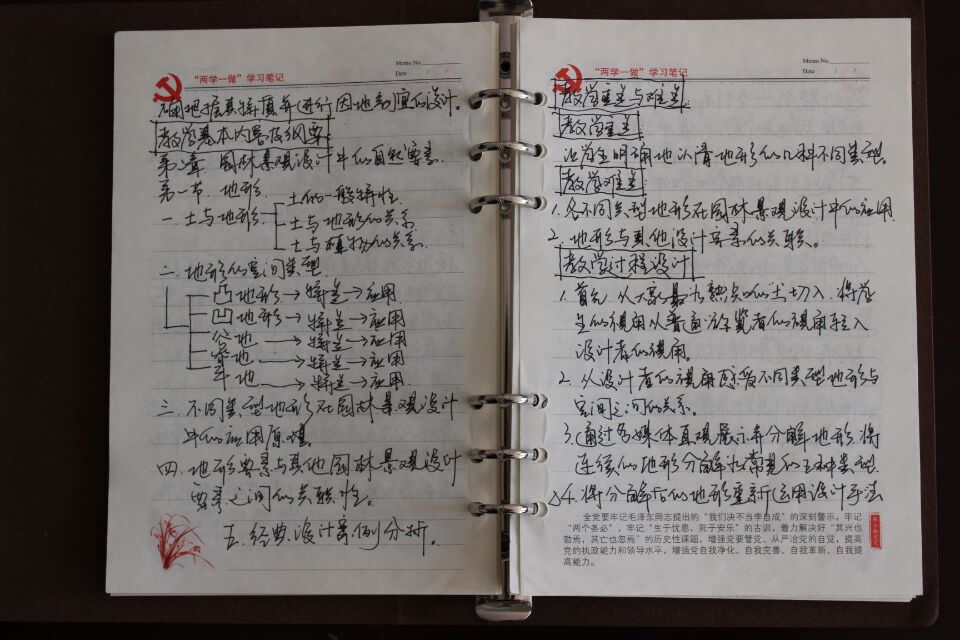 “两学一做”学习笔记
Memo No.
Date
确地把握其特质并进行因地制宜的设计。
教学基本内容及纲要
第二章 园林景观设计中的自然要素.
第一节 地形.
一.土与地形
土的一般特性.
土与地形的关系
土与植物的关系.
二.地形的空间类型.
凸地形→特点→应用.
凹地形→特点→应用
谷地→特点→应用
脊地→特点→应用
平地→特点→应用.
三.不同类型地形在园林景观设计
中的应用原理.
四.地形要素与其他园林景观设计
要素之间的关联性。
五.经典设计案例分析.
“两学一做”学习笔记
Memo No.
Date
教学重点与难点
教学重点
让学生明确地认清地形的几种不同类型.
教学难点
1.各不同类型地形在园林景观设计中的应用
2.地形与其他设计要素的关联。
教学过程设计
1.首先从大家最为熟知的土切入.将学
生的视角从普通游览者的视角转入
设计者的视角.
2.从设计者的视角感受不同类型地形与
空间之间的关系.
3.通过多媒体直观展示并分解地形.将
连续的地形分解为常见的五种类型.
4.将分解后的地形重新运用设计手法
全党要牢记毛泽东同志提出的“我们决不当李自成”的深刻警示，牢记
“两个务必”，牢记“生于忧患，死于安乐”的古训，着力解决好“其兴也
勃焉，其亡也忽焉”的历史性课题，增强党要管党、从严治党的自觉，提高
党的执政能力和领导水平，增强党自我净化、自我完善、自我革新、自我提
高能力。